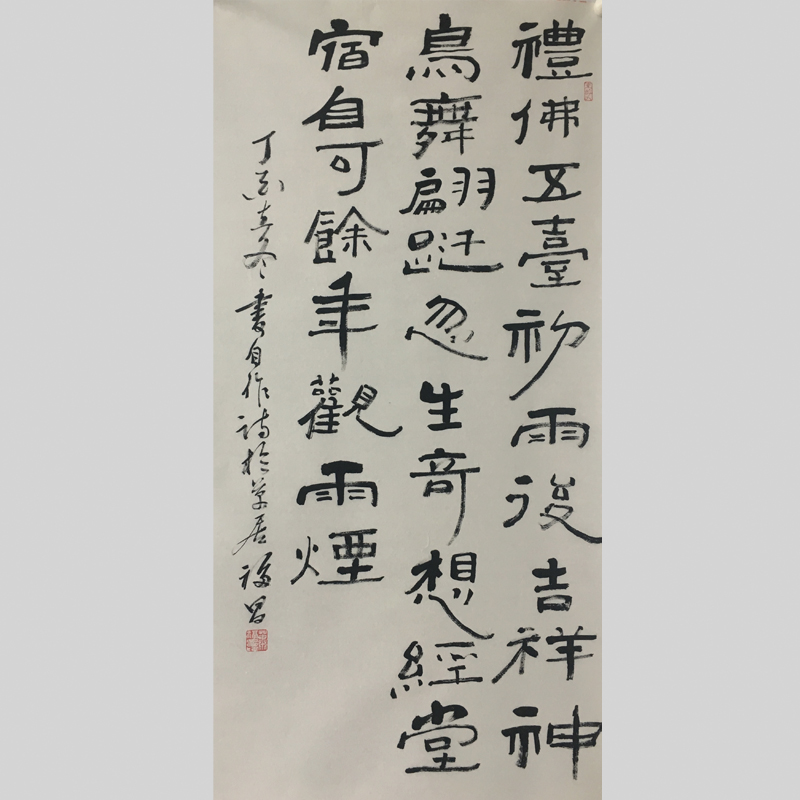 禮佛五臺初雨後吉祥神
鳥舞翩跹忽生奇想經堂
宿自可餘年觀雨煙
丁酉春冬書自作詩於草居福昌